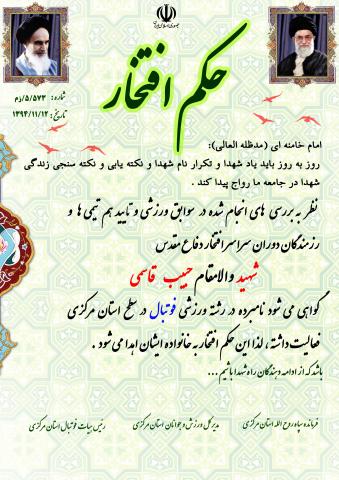 جمهوری اسلامی ایران
حکم افتخار
شماره: ۵/۵۷۳/م
تاریخ: ۱۳۹۴/۱۱/۱۲
امام خامنه ای (مدظله العالی):
روز به روز باید یاد شهدا و تکرار نام شهدا و نکته یابی و نکته سنجی زندگی
شهدا در جامعه ما رواج پیدا کند .
نظر به بررسی های انجام شده در سوابق ورزشی و تایید هم تیمی ها و
رزمندگان دوران سراسر افتخار دفاع مقدس
شهید والامقام حبیب قاسمی
گواهی می شود نامبرده در رشته ورزشی فوتبال در سطح استان مرکزی
فعالیت داشته ، لذا این حکم افتخار به خانواده ایشان اهدا می شود .
باشد که از ادامه دهندگان راه شهدا باشیم...
فرمانده سپاه روح الله استان مرکزی
مدیر کل ورزش و جوانان استان مرکزی
رئیس هیات فوتبال استان مرکزی